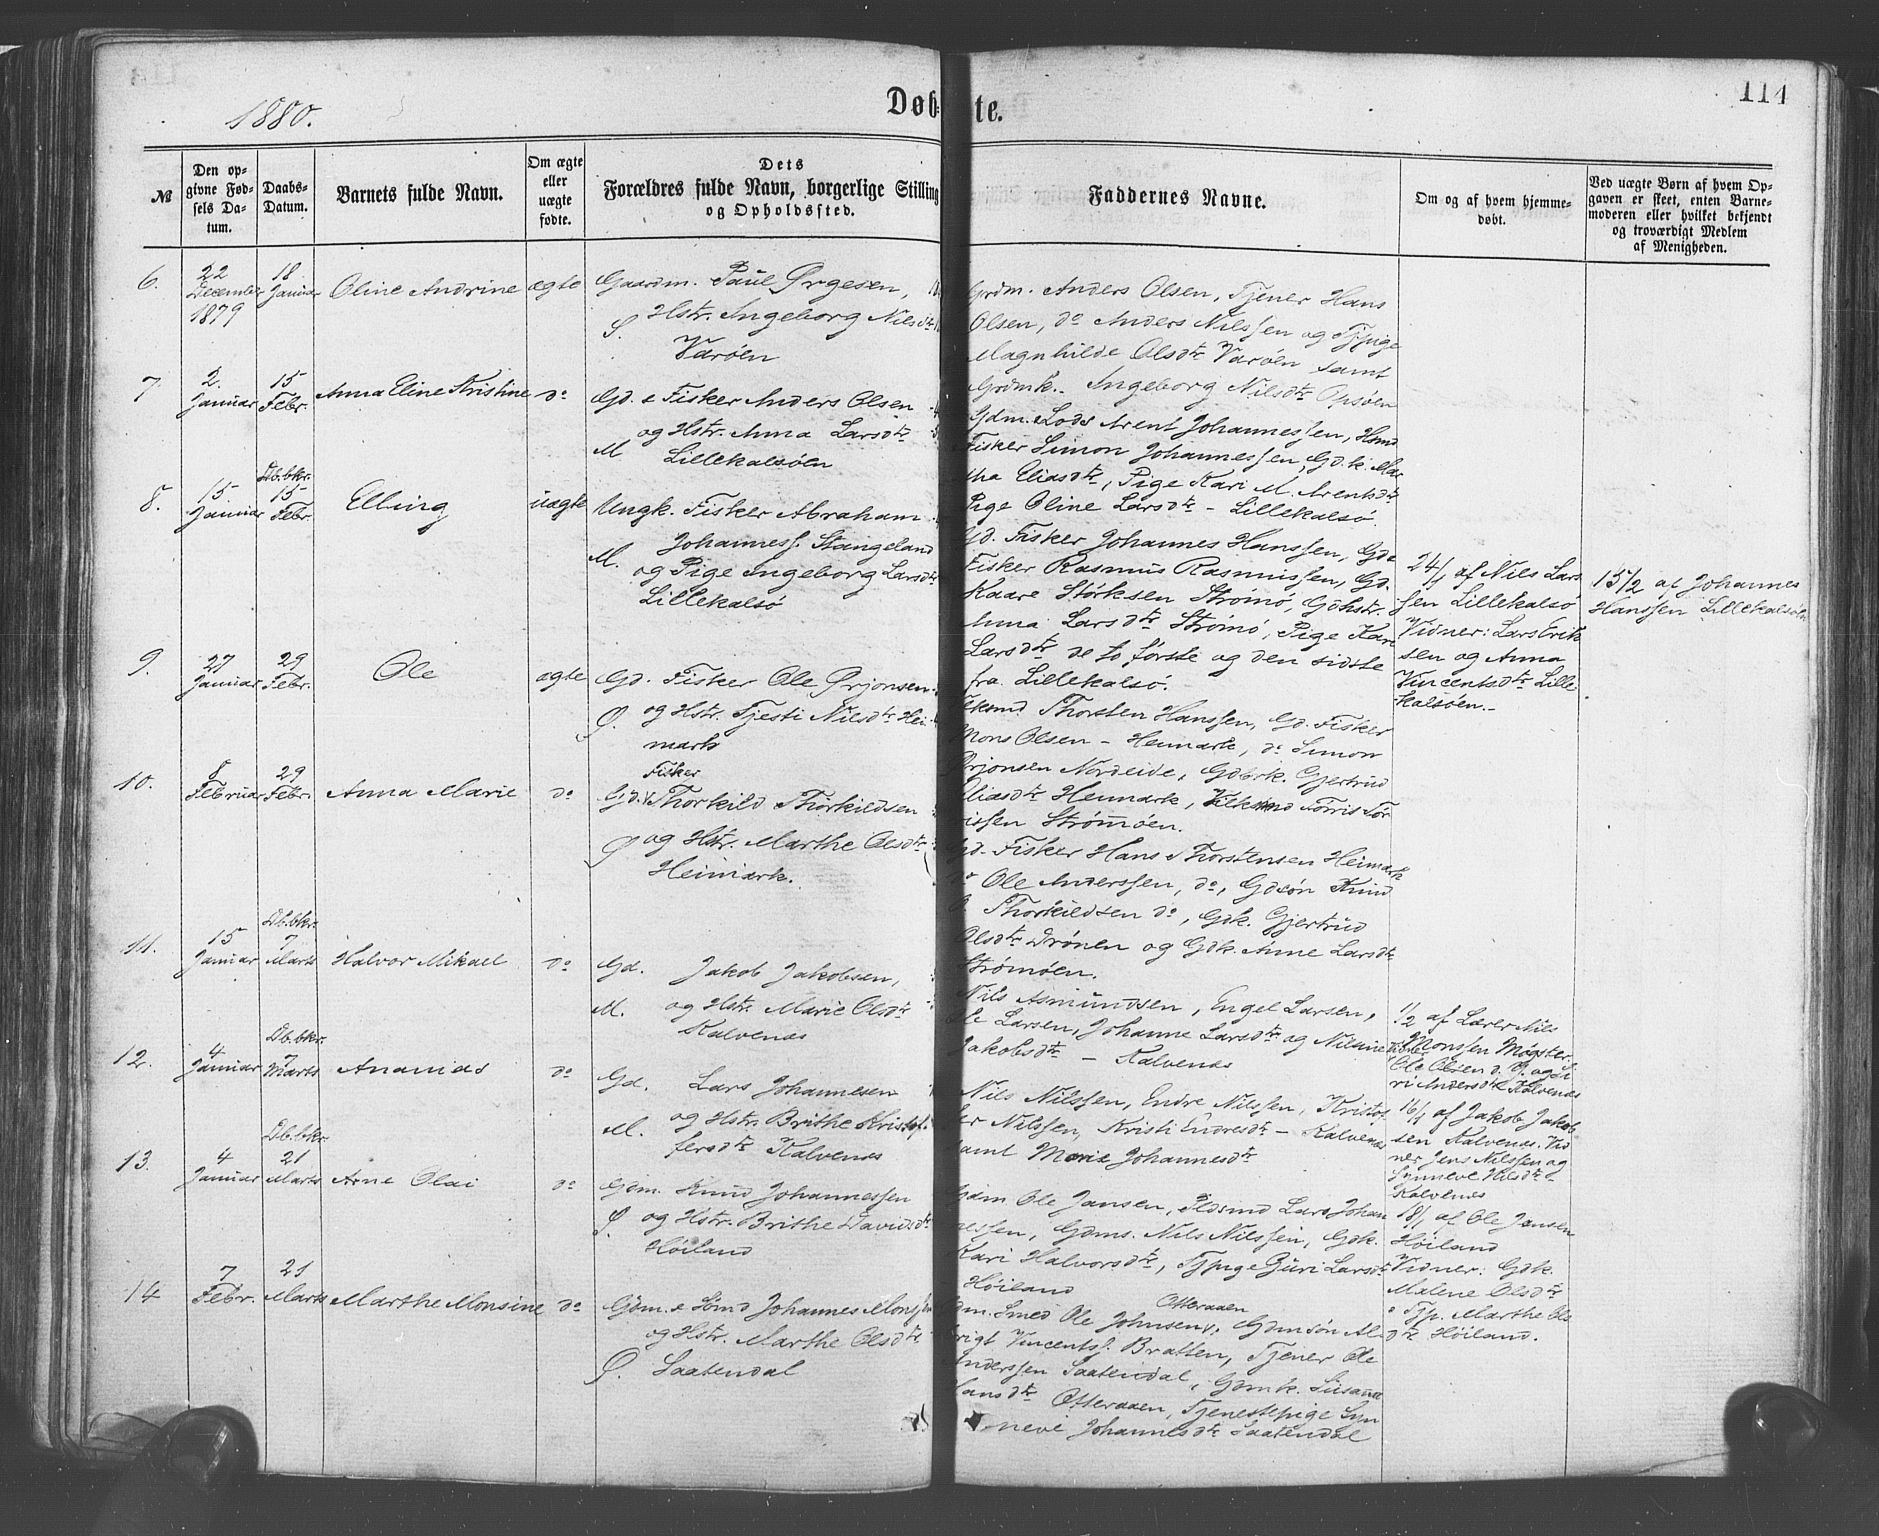 1880.
Døbte.
114
№
Den opgivne Fødsels Datum.
Daabs-Datum.
Barnets fulde Navn.
Om ægte eller uægte fødte.
Dets Forældres fulde Navn, borgerlige Stilling og Opholdssted.
Faddernes Navne.
Om og af hvem hjemmedøbt.
Ved uægte Børn af hvem Opgaven er skeet, enten Barnemoderen eller hvilket bekjendt og troværdigt Medlem af Menigheden.
6.
22 December 1879
18 Januar
Oline Andrine
ægte
Gaardm. Paul Ørgesen,
Hstr. Ingeborg Nilsdtr
Varøen
Grdm. Anders Olsen, Tjener Hans
Olsen, do Anders Nilssen og Tjpige
Magnhilde Olsdtr Varøen samt
Grdmk. Ingeborg Nilsdtr Opsøen
7
2. Januar
15 Febr.
Anna Eline Kristine
do
Gd. & Fisker Anders Olsen
og Hstr. Anna Larsdtr
M Lillekalsøen
Gdm. & Lods Arent Johannessen, Hsmd
Fisker Simon Johannessen, Gd.k. Mar
tha Eliasdtr, Pige Kari M. Arentsdtr
Pige Oline Larsdtr - Lillekalsø.
8.
15 Januar
Db.bkr. 15 Febr.
Elling
uægte
Ungk. Fisker Abraham
Johanness. Stangeland
M. og Pige Ingeborg Larsdtr
Lillekalsø
Gd. Fisker Johannes Hanssen, Gd &
Fisker Rasmus Rasmussen, Gd.
Kaare Størksen Strømø, Gdhstr.
Anna Larsdtr Strømø, Pige Kari
Larsdtr de to første og den sidste
fra Lillekalsø.
24/1 af Nils Lars
sen Lillekalsø
Vidner: Lars Erik
sen og Anna
Vincentsdtr Lille
kalsøen.
15/2 af Johannes
Hanssen Lillekalsøen
9.
27 Januar
29 Febr.
Ole
ægte
Gd. Fisker Ole Ørjonsen
Ø. og Hstr. Tjesti Nilsdtr Hei
mark
Thorsten Hanssen, Gd. Fisker
Mons Olsen - Heimark, do Simon
Ørjonsen Nordeide, Gdbrk. Gjertrud
Eliasdtr Heimark, Torris Tor
rissen Strømøen.
10.
8 Februar
29 Febr.
Anna Marie
do
Fisker
Gd. Thorkild Thorkildsen
Ø og Hstr. Marthe Olsdtr
Heimark.
Gd. Fisker Hans Thorstensen Heimark
do Ole Anderssen, do, Gdsøn Knud
Thorkildsen do, Gdk. Gjertrud
Olsdtr Drønen og Gdk. Anne Larsdtr
Strømøen.
11.
15 Januar
Db.bkr. 7 Marts
Halvor Mikael
do
Gd. Jakob Jakobsen,
M. og Hstr. Marie Olsdtr
Kalvenes
Nils Asmundsen, Engel Larsen,
Ole Larsen, Johanne Larsdtr og Nilsine
Jakobsdtr - Kalvenes
1/2 af Lærer Nils
Monssen Møgster.
Ole Olsen og Si
ri Andersdtr Kalvenes
12.
4 Januar
Db.bkr. 7 Marts
Ananias
do
Gd. Lars Johannesen
M. og Hstr. Brithe Kristof
fersdtr Kalvenes
Nils Nilssen, Endre Nilssen, Kristof
fer Nilssen, Kristi Endresdtr - Kalvenes
samt Marie Johannesdtr
16/1 af Jakob Jakob
sen Kalvenes. Vid
ner Jens Nilssen og
Synneve Nilsdtr
Kalvenes
13.
4 Januar
Db.bkr. 21 Marts
Arne Olai
do
Gdm. Knud Johannessen
Ø. og Hstr. Brithe Davidsdtr
Høiland
Gdm Ole Jansen, Lars Johan
nessen, Gdms. Nils Nilssen, Gdk.
Kari Halvorsdtr, Tjpige Guri Larsdtr
Høiland
18/1 af Ole Jansen
Høiland
Vidner: Gdk.
Malene Olsdtr
& Tjp. Marthe Ols
dtr Høiland.
14
7 Febr.
21 Marts
Marthe Monsine
do
Gdm. & Smed Johannes Monssen
og Hstr. Marthe Olsdtr
Ø. Saatendal
Otteraaen
Gdm. Smed Ole Johnsen, Gdmsøn Al
brigt Vincentss. Bratten, Tjener Ole
Anderssen Saatendal, Gdmk. Susanne
Hansdtr Otteraaen, Tjenestepige Syn
neve Johannesdtr Saatendal